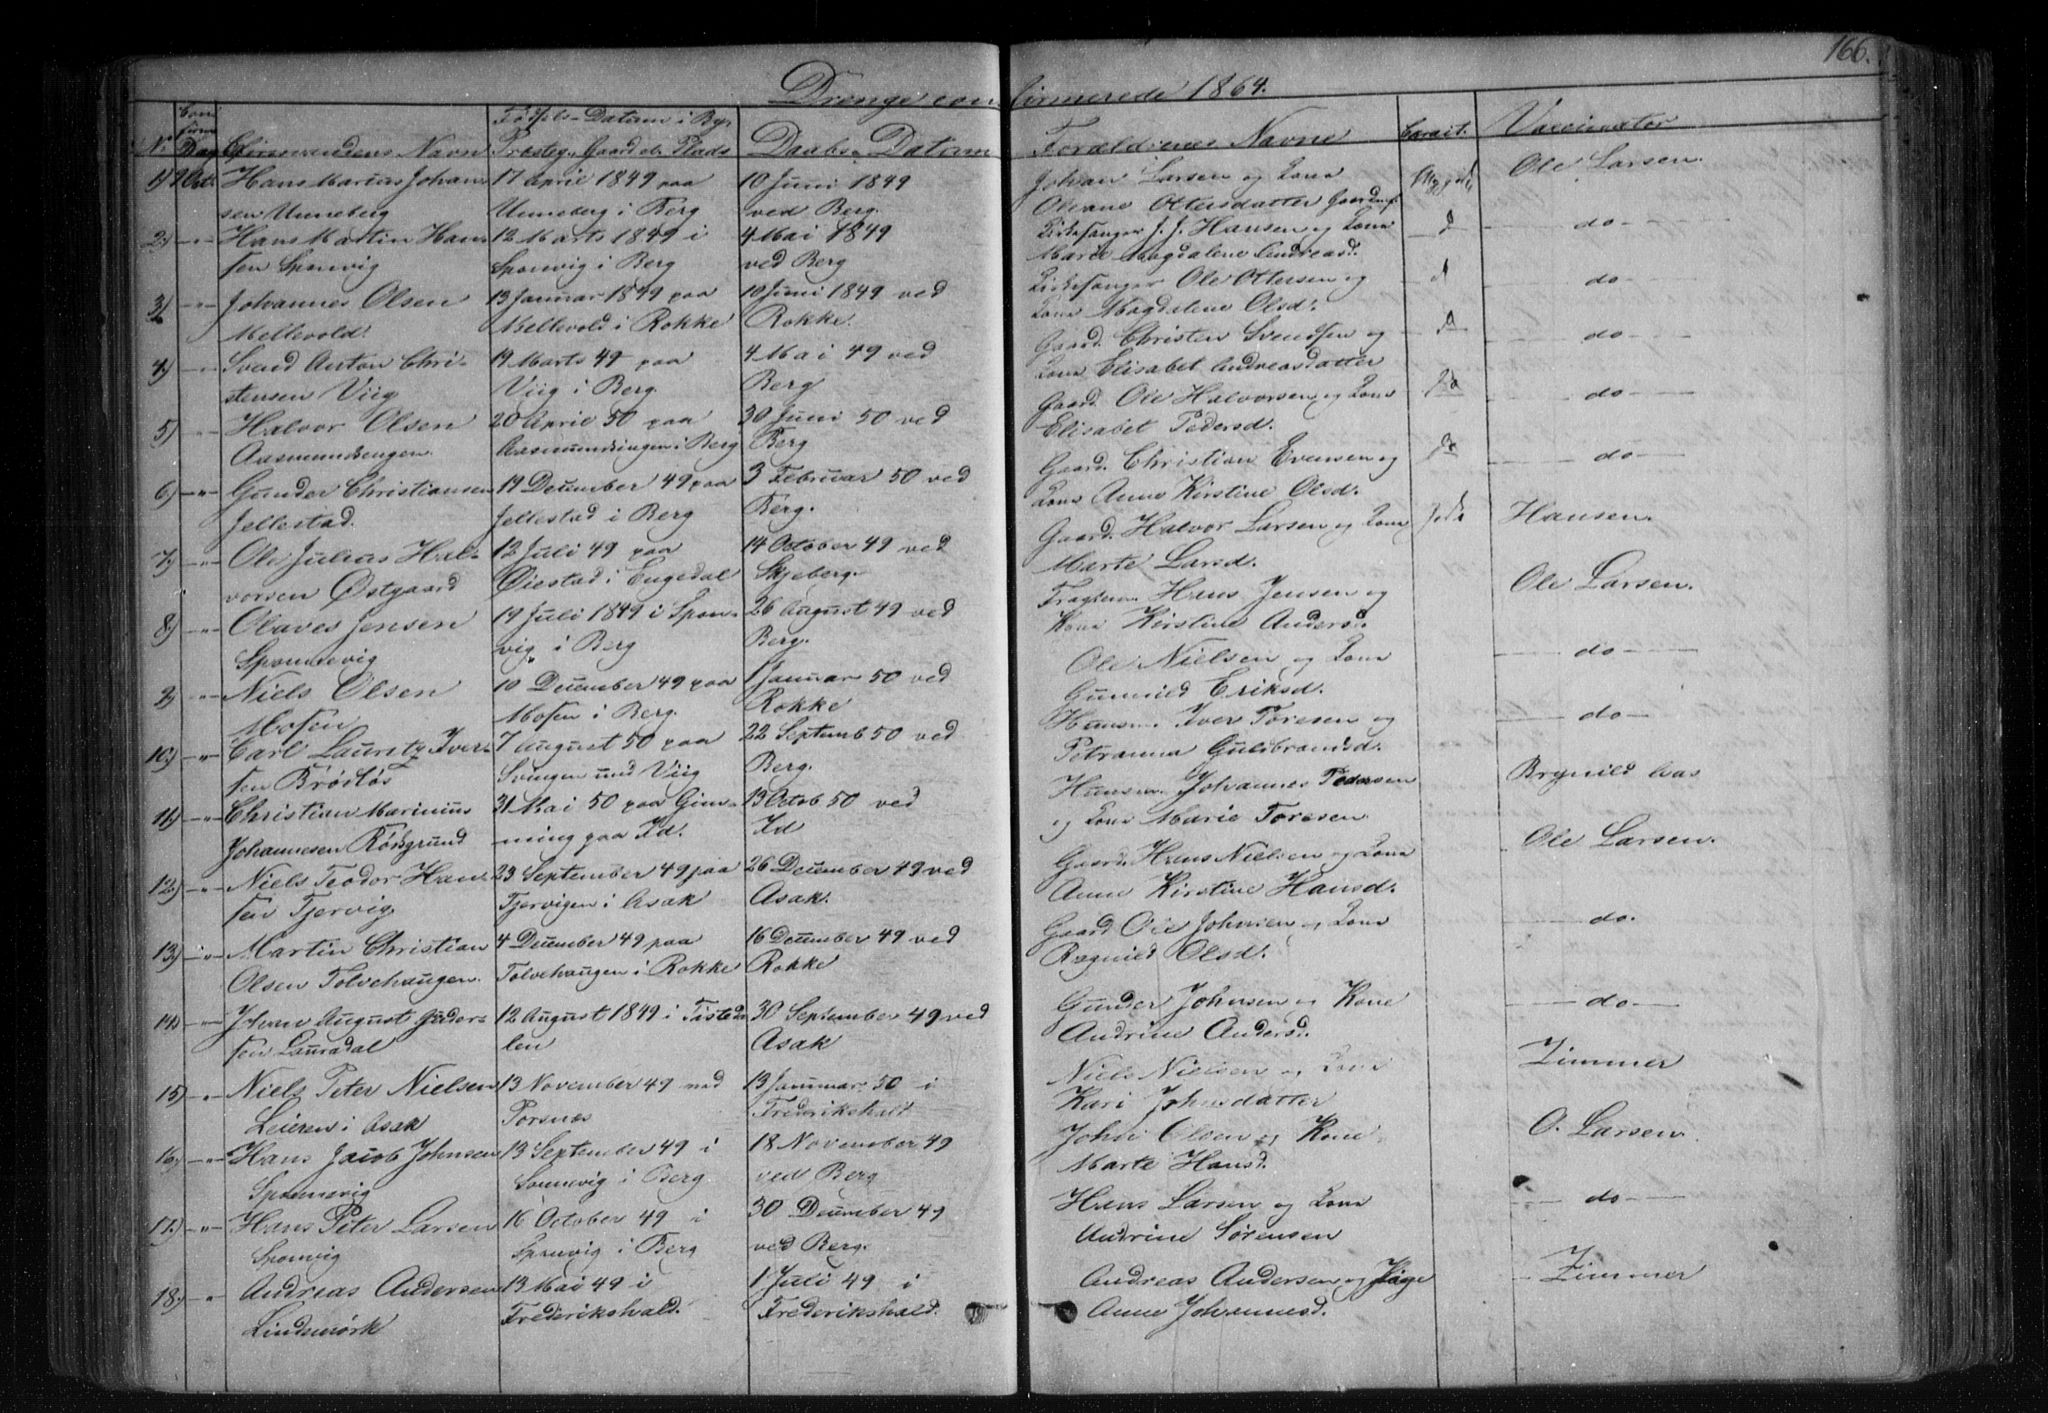 166.
Drenge confirmerede 1864.
No Dag Confirmandens Navn Fødsels-Datum i By, Præsteg., Gaard el. Plads Daabs-Datum Forældrenes Navne Caract. Vaccinator
1) 9 Oct. Hans Marius Johan- 17 April 1849 paa 10 Juni 1849 Johan Larsen og Kone Ole Larsen.
sen Unneberg Unneberg i Berg ved Berg. Oleane Ottersdatter
2) -"- Hans Martin Han- 12 Marts 1849 i 4 Mai 1849 Kirkesanger J. J. Hansen og Kone do
sen Sponvig Sponvig i Berg ved Berg Marie Magdalene Andreasd.
3) -"- Johannes Olsen 13 Januar 1849 paa 10 Juni 1849 ved Kirkesanger Ole Ottersen og do
Mellevold. Mellevold i Rokke Rokke. Kone Magdalene Olsd.
4) -"- Svend Anton Chri- 19 Marts 49 paa 4 Mai 49 ved Gaard. Christen Svendsen og do
stensen Viig Viig i Berg. Berg Kone Elisabet Andreasdatter
5) -"- Halvor Olsen 20 April 50 paa 30 Juni 50 ved Gaard. Ole Halvorsen og Kone do
Aasmundsengen. Aasmundsengen i Berg Berg Elisabet Pedersd.
6) -"- Gunder Christiansen 19 December 49 paa 3 Februar 50 ved Gaard. Christian Evensen og do
Jellestad. Jellestad i Berg Berg. Kone Anne Kirstine Olsd.
7) -"- Ole Julius Hal- 12 Juli 49 paa 14 October 49 ved Gaard. Halvor Larsen og Kone Hansen.
vorsen Østgaard Øiestad i Engedal Skjeberg. Marte Larsd.
8) -"- Olaves Jensen 19 Juli 1849 i Spon- 26 August 49 ved Hans Jensen og Ole Larsen.
Sponnevig vig i Berg Berg. Kone Kirstine Andersd.
9) -"- Niels Olsen 10 December 49 paa 1 Januar 50 ved Ole Nielsen og Kone do
Mosen Mosen i Berg. Rokke Gunnild Eriksd.
10) -"- Carl Lauritz Iver- 7 August 50 paa 22 Septemb 50 ved Husm. Iver Toresen og do
sen Brödlös Svingen und Viig Berg. Petranna Gulbrandsd.
11) -"- Christian Marinius 31 Mai 50 paa Gim- 13 Octob 50 ved Husm. Johannes Pedersen Brynild Aas
Johannesen Rörsgrund ming paa Id. Id og Kone Marie Toresen.
12) -"- Niels Teodor Han- 23 September 49 paa 26 December 49 ved Gaard. Hans Nielsen og Kone Ole Larsen.
sen Tjervig Tjervigen i Asak Asak. Anne Kirstine Hansd.
13) -"- Martin Christian 4 December 49 paa 16 December 49 ved Gaard Ole Johnsen og Kone do.
Olsen Tolvehaugen. Tolvehaugen i Rokke Rokke Ragnild Olsd.
14) -"- Johan August Guder- 12 August 1849 i Tisteda- 30 September 49 ved Gunder Johnsen og Kone do
sen Lauradal len Asak Andrine Andersd.
15) -"- Niels Peter Nielsen 13 November 49 ved 13 Januar 50 i Niels Nielsen og Kone Zimmer
Leieren i Asak Torsnæs Frederikshald Kari Johnsdatter
16) -"- Hans Jacob Johnsen 13 September 49 i 18 November 49 John Olsen og Kone O. Larsen.
Sponnevig Sonnevig i Berg. ved Berg Marte Hansd.
17) -"- Hans Peter Larsen 16 October 49 i 30 December 49 Hans Larsen og Kone do
Sponvig Sponvig i Berg ved Berg. Andrine Sörensen
18) -"- Andreas Andersen 13 Mai 49 i 1 Juli 49 i Andreas Andersen og Pige Zimmer
Lindemörk Frederikshald. Frederikshald. Anne Johannesd.